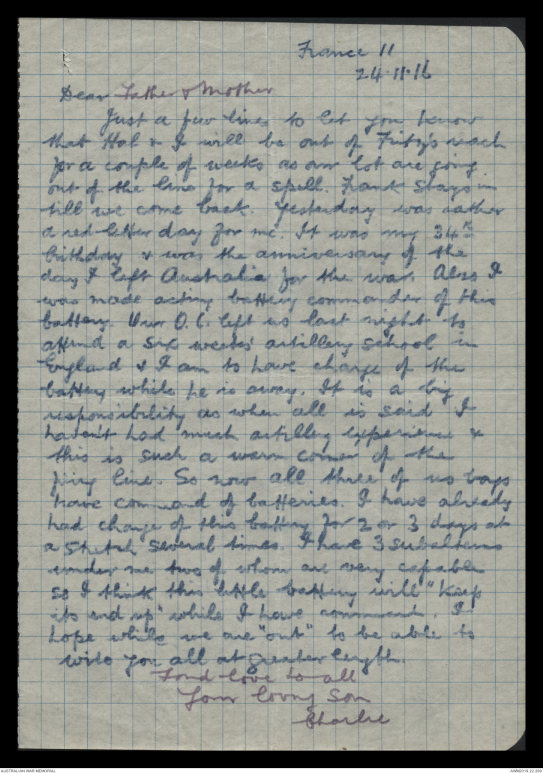 France 11
24.11.16
Dear Father & Mother
Just a few lines to let you know
that Hal & I will be out of Fritz's reach
for a couple of weeks as our lot are going
out of the line for a spell. Frank stays in
till we come back. Yesterday was rather
a red-letter day for me. It was my 34th
birthday & was the anniversary of the
day I left Australia for the war. Also I
was made acting battery commander of this
battery. Our O.C. left us last night to
attend a six weeks' artillery school in
England & I am to have charge of the
battery while he is away. It is a big
responsibility as when all is said I
haven't had much artillery experience &
this is such a warm corner of the
firing line. So now all three of us boys
have command of batteries. I have already
had charge of this battery for 2 or 3 days at
a stretch several times. I have 3 subalterns
under me two of whom are very capable
so I think this little battery will "keep
its end up" while I have command. I
hope while we are "out" to be able to
write you all at greater length.
Fond love to all
Your loving Son
Charlie
AUSTRALIAN WAR MEMORIAL